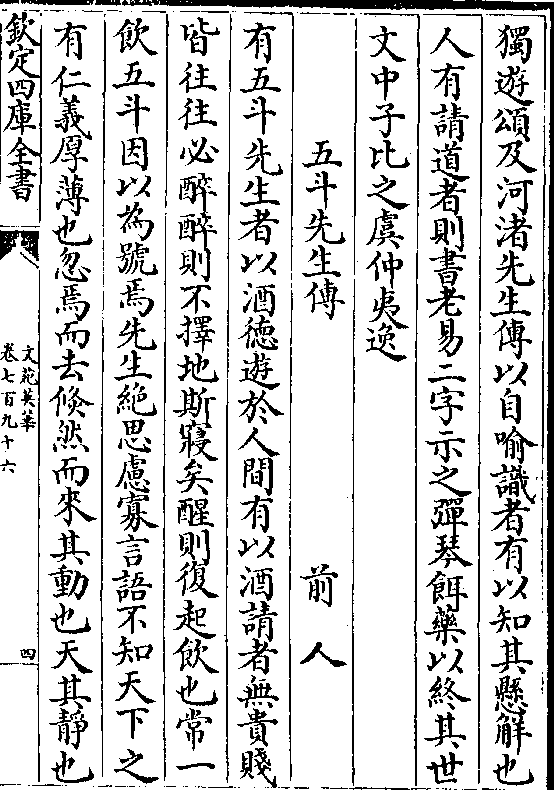 獨遊頌及河渚先生傳以自喻識者有以知其懸解也
人有請道者則書老易二字示之彈琴餌藥以終其世
文中子比之虞仲夷逸
五斗先生傳 前人
有五斗先生者以酒德遊於人間有以酒請者無貴賤
皆往往必醉醉則不擇地斯寢矣醒則復起飲也常一
飲五斗因以為號焉先生絶思慮寡言語不知天下之
有仁義厚薄也忽焉而去倐然而來其動也天其靜也
欽定四庫全書
文苑英華
卷七百九十六
四